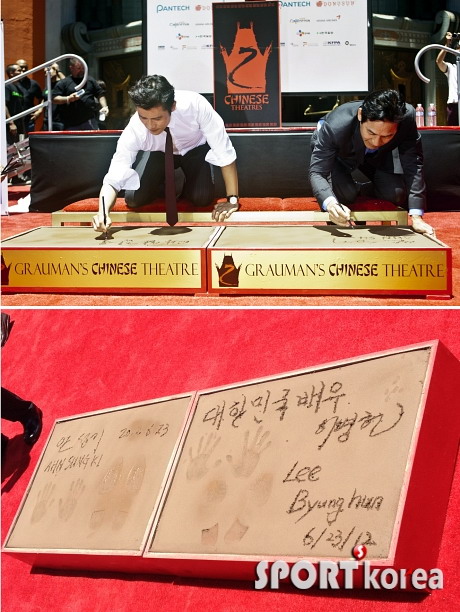 PANTECH
DONGSUH
CHINESE
THEATRES
GRAUMAN'S CHINESE THEATRE
GRAUMAN'S CHINESE THEATRE
안성기
AHN SUNG KI
대한민국 배우
이병헌
Lee
Byung hun
6/23/12
SPORTkorea